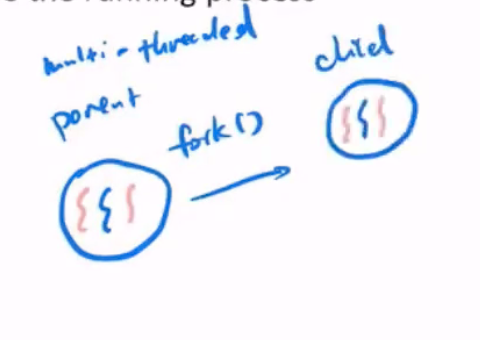 the running process
multi-threaded
parent
fork()
child